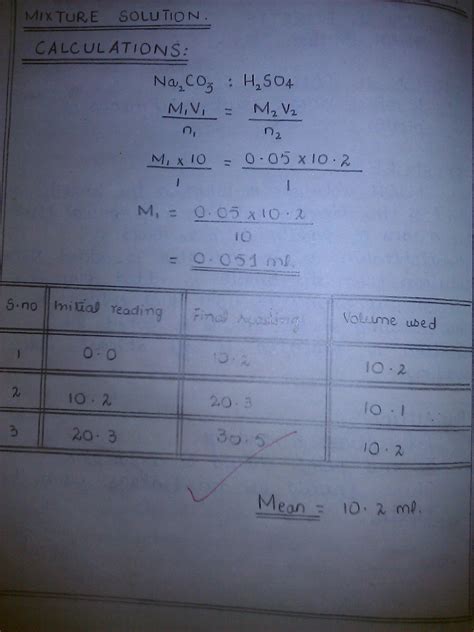 MIXTURE SOLUTION.
CALCULATIONS:
Na₂CO₃ : H₂SO₄
M₁V₁ = M₂V₂
n₁ n₂
M₁ x 10 = 0.05 x 10.2
1 1
M₁ = 0.05 x 10.2
10
= 0.051 ml.
S.no Initial reading Final reading Volume used
1 0.0 10.2 10.2
2 10.2 20.3 10.1
3 20.3 30.5 10.2
Mean = 10.2 ml.